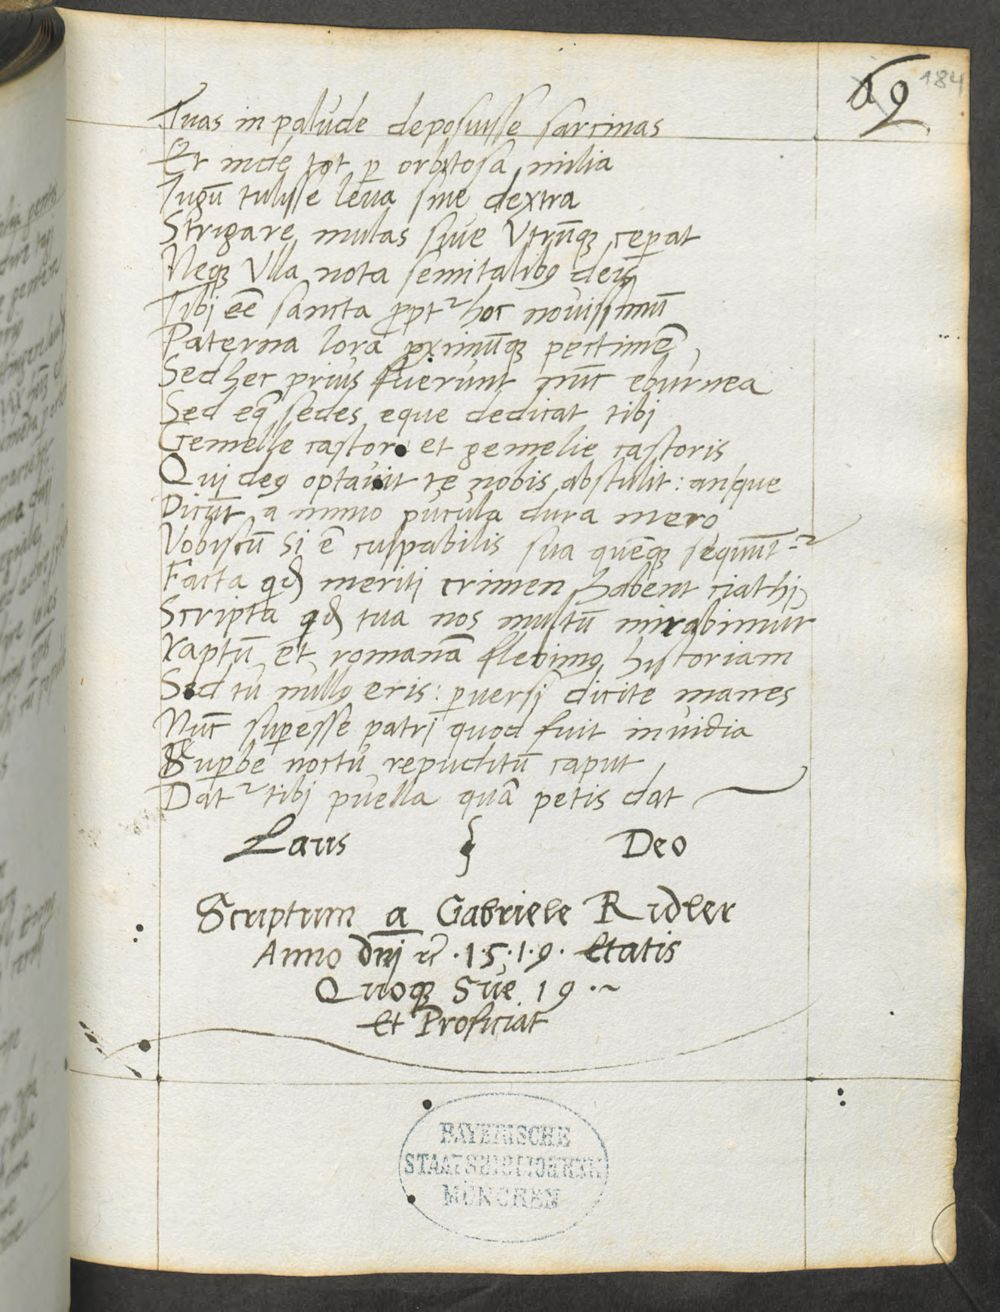 69 184
Tuas in palude deposuisse sarcinas
Et inde tot p orbitosa milia
Iugū tulisse leua siue dextra
Strigare mulas siue Vtrūq; ceperat
Neq; Vlla nota semitalibꝰ deis
Tibi eē sancta ꝓpt hoc nouissimū
Paterna lora ꝓximūq; pectinē
Sed hec prius fuerunt nūc eburnea
Sed eq; sedes eque dedicat tibi
Gemelle castor et gemelle castoris
Qui deꝰ optauit te nobis abstulit: anque
Dicūt a nimio pucula dura mero
Vobiscū si ē culpabilis sua quēq; sequunt
Facta qd meriti crimen habent ciathi
Scripta qd tua nos multū mirabimur
raptū et romanā flebimꝰ historiam
Sed tu nullꝰ eris: puersi dicite manes
Nūc supesse patri quod fuit inuidia
Supbe noctu repuditū caput
Dat tibi puella quā petis dat
Laus Deo
Scriptum a Gabriele Ridler
Anno dnj rc .1.5.1.9. Etatis
Quoq; Sue 19.
Et Proficiat
BAYERISCHE
STAATSBIBLIOTHEK
MÜNCHEN